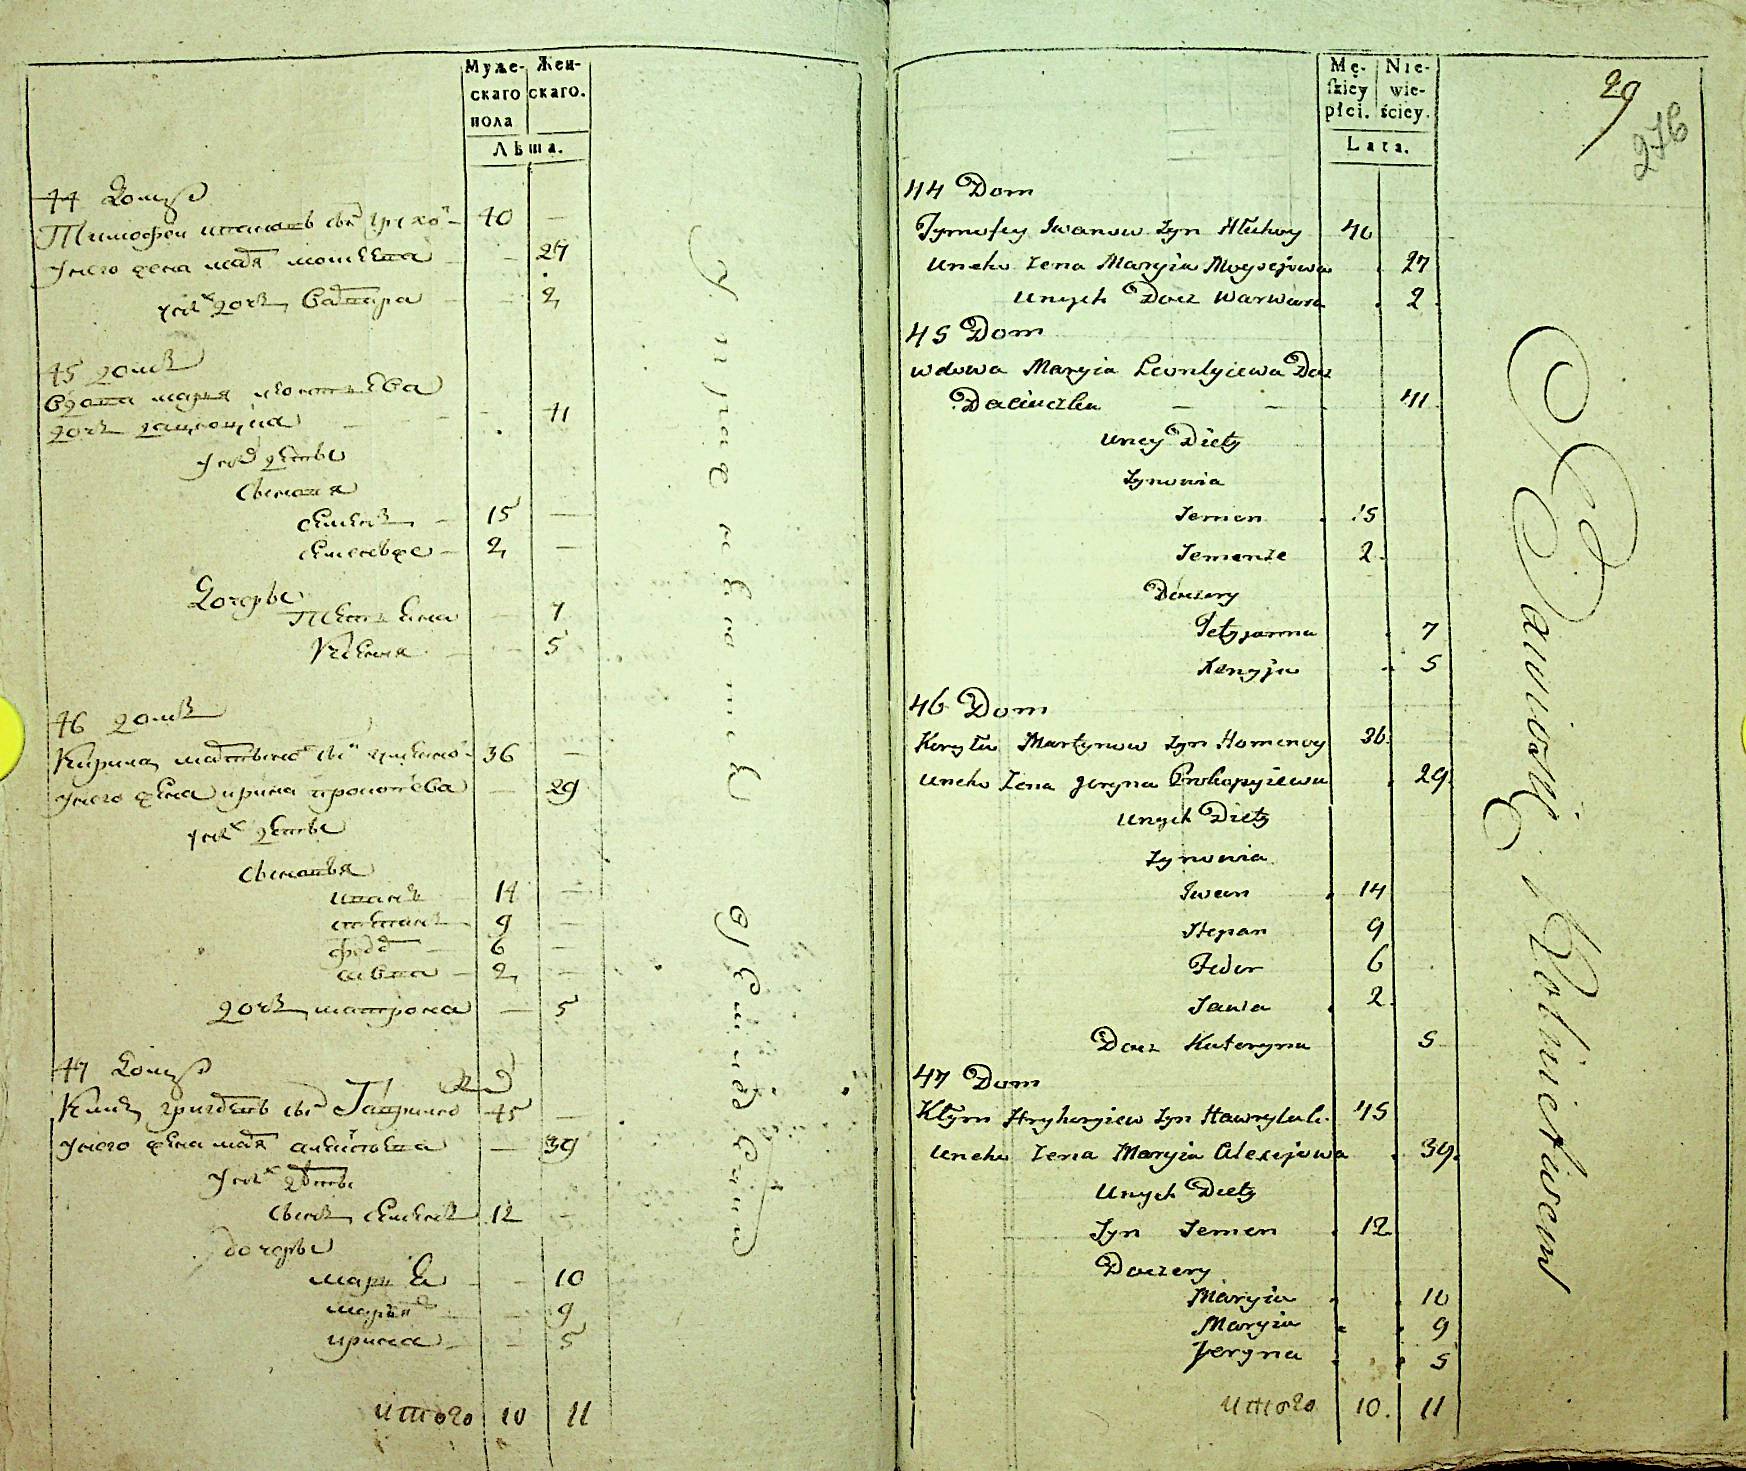 Муже- Жен-
скаго скаго.
пола
Лѣта.
44 Домъ
Тимофей Ивановъ сынъ 40 —
у него жена Марья Мосеева — 27
у них дочь Варвара — 2
45 домъ
вдова Марья Леонтьева
дочь — 41
у ней дети
сыновья
Семенъ — 15 —
Семенже — 2 —
Дочеры
Тетьяна — 7
Ксенья — 5
46 домъ
Кирила Мартыновъ сынъ 36 —
у него жена Ирина Прокопьева — 29
у них дети
сыновья
Иванъ — 14 —
Степанъ — 9 —
Федоръ — 6 —
Савва — 2 —
дочь — 5
47 Домъ
Климъ Григорьевъ сынъ Гаврилко 45 —
у него жена Марья Алексеева — 39
у них дети
сынъ Семенъ 12 —
дочеры
Марья — 10
Марья — 9
Ирина — 5
Итого 10 11
Mę- Nie-
skiey wie-
płci. ściey.
Lata.
29
276
44 Dom
Tymofey Iwanow Syn Hłuhoy 40
Uneho Żena Maryia Moysejowa 27
Unych Docz Warwara 2
45 Dom
Wdowa Maryia Leontyiewa Docz
41
Uney Diety
Synowia
Semen 15
Semenże 2
Doczery
Tetyjanna 7
Xenyja 5
46 Dom
Kiryła Martynow Syn Homenoy 36
Uneho Żena Jeryna Prokopyiewa 29
Unych Diety
Synowia
Iwan 14
Stepan 9
Fedor 6
Sawa 2
Docz Kateryna 5
47 Dom
Kłym Hryhoryiew Syn Hawryluk 45
Uneho Żena Maryia Alexejowa 39
Unych Diety
Syn Semen 12
Doczery
Maryia 10
Maryia 9
Jeryna 5
Итого 10. 11